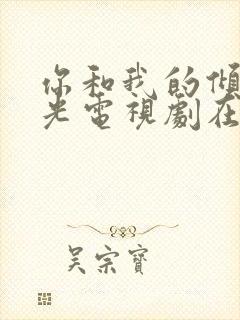 你和我的傾
光電視劇在
吳宗寶